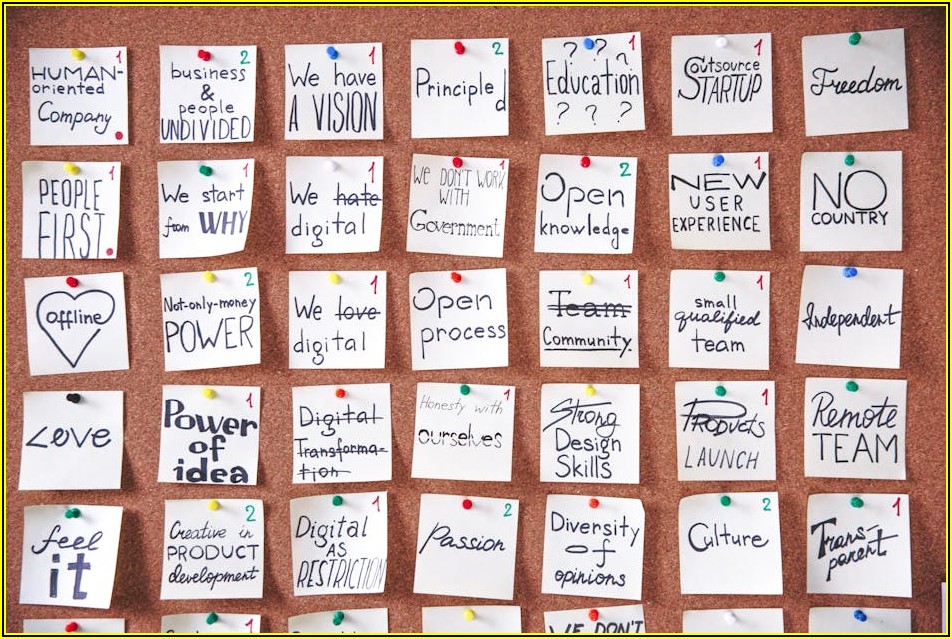 1
HUMAN-
oriented
Company
2
business
&
people
UNDIVIDED
1
We have
A VISION
2
Principled
1
? ? ?
Education
? ? ?
1
Outsource
STARTUP
Freedom
1
PEOPLE
FIRST
1
We start
from WHY
1
We hate
digital
1
WE DON'T WORK
WITH
Government
2
Open
knowledge
1
NEW
USER
EXPERIENCE
NO
COUNTRY
offline
2
Not-only-money
POWER
1
We love
digital
Open
process
1
Team
Community
1
small
qualified
team
Independent
Love
1
Power
of
idea
Digital
Transforma-
tion
1
Honesty with
ourselves
Strong
Design
Skills
1
Products
LAUNCH
Remote
TEAM
feel
it
2
Creative in
PRODUCT
development
1
Digital
AS
RESTRICTION
2
Passion
Diversity
of
opinions
2
Culture
1
Trans-
parent
1
WE DON'T